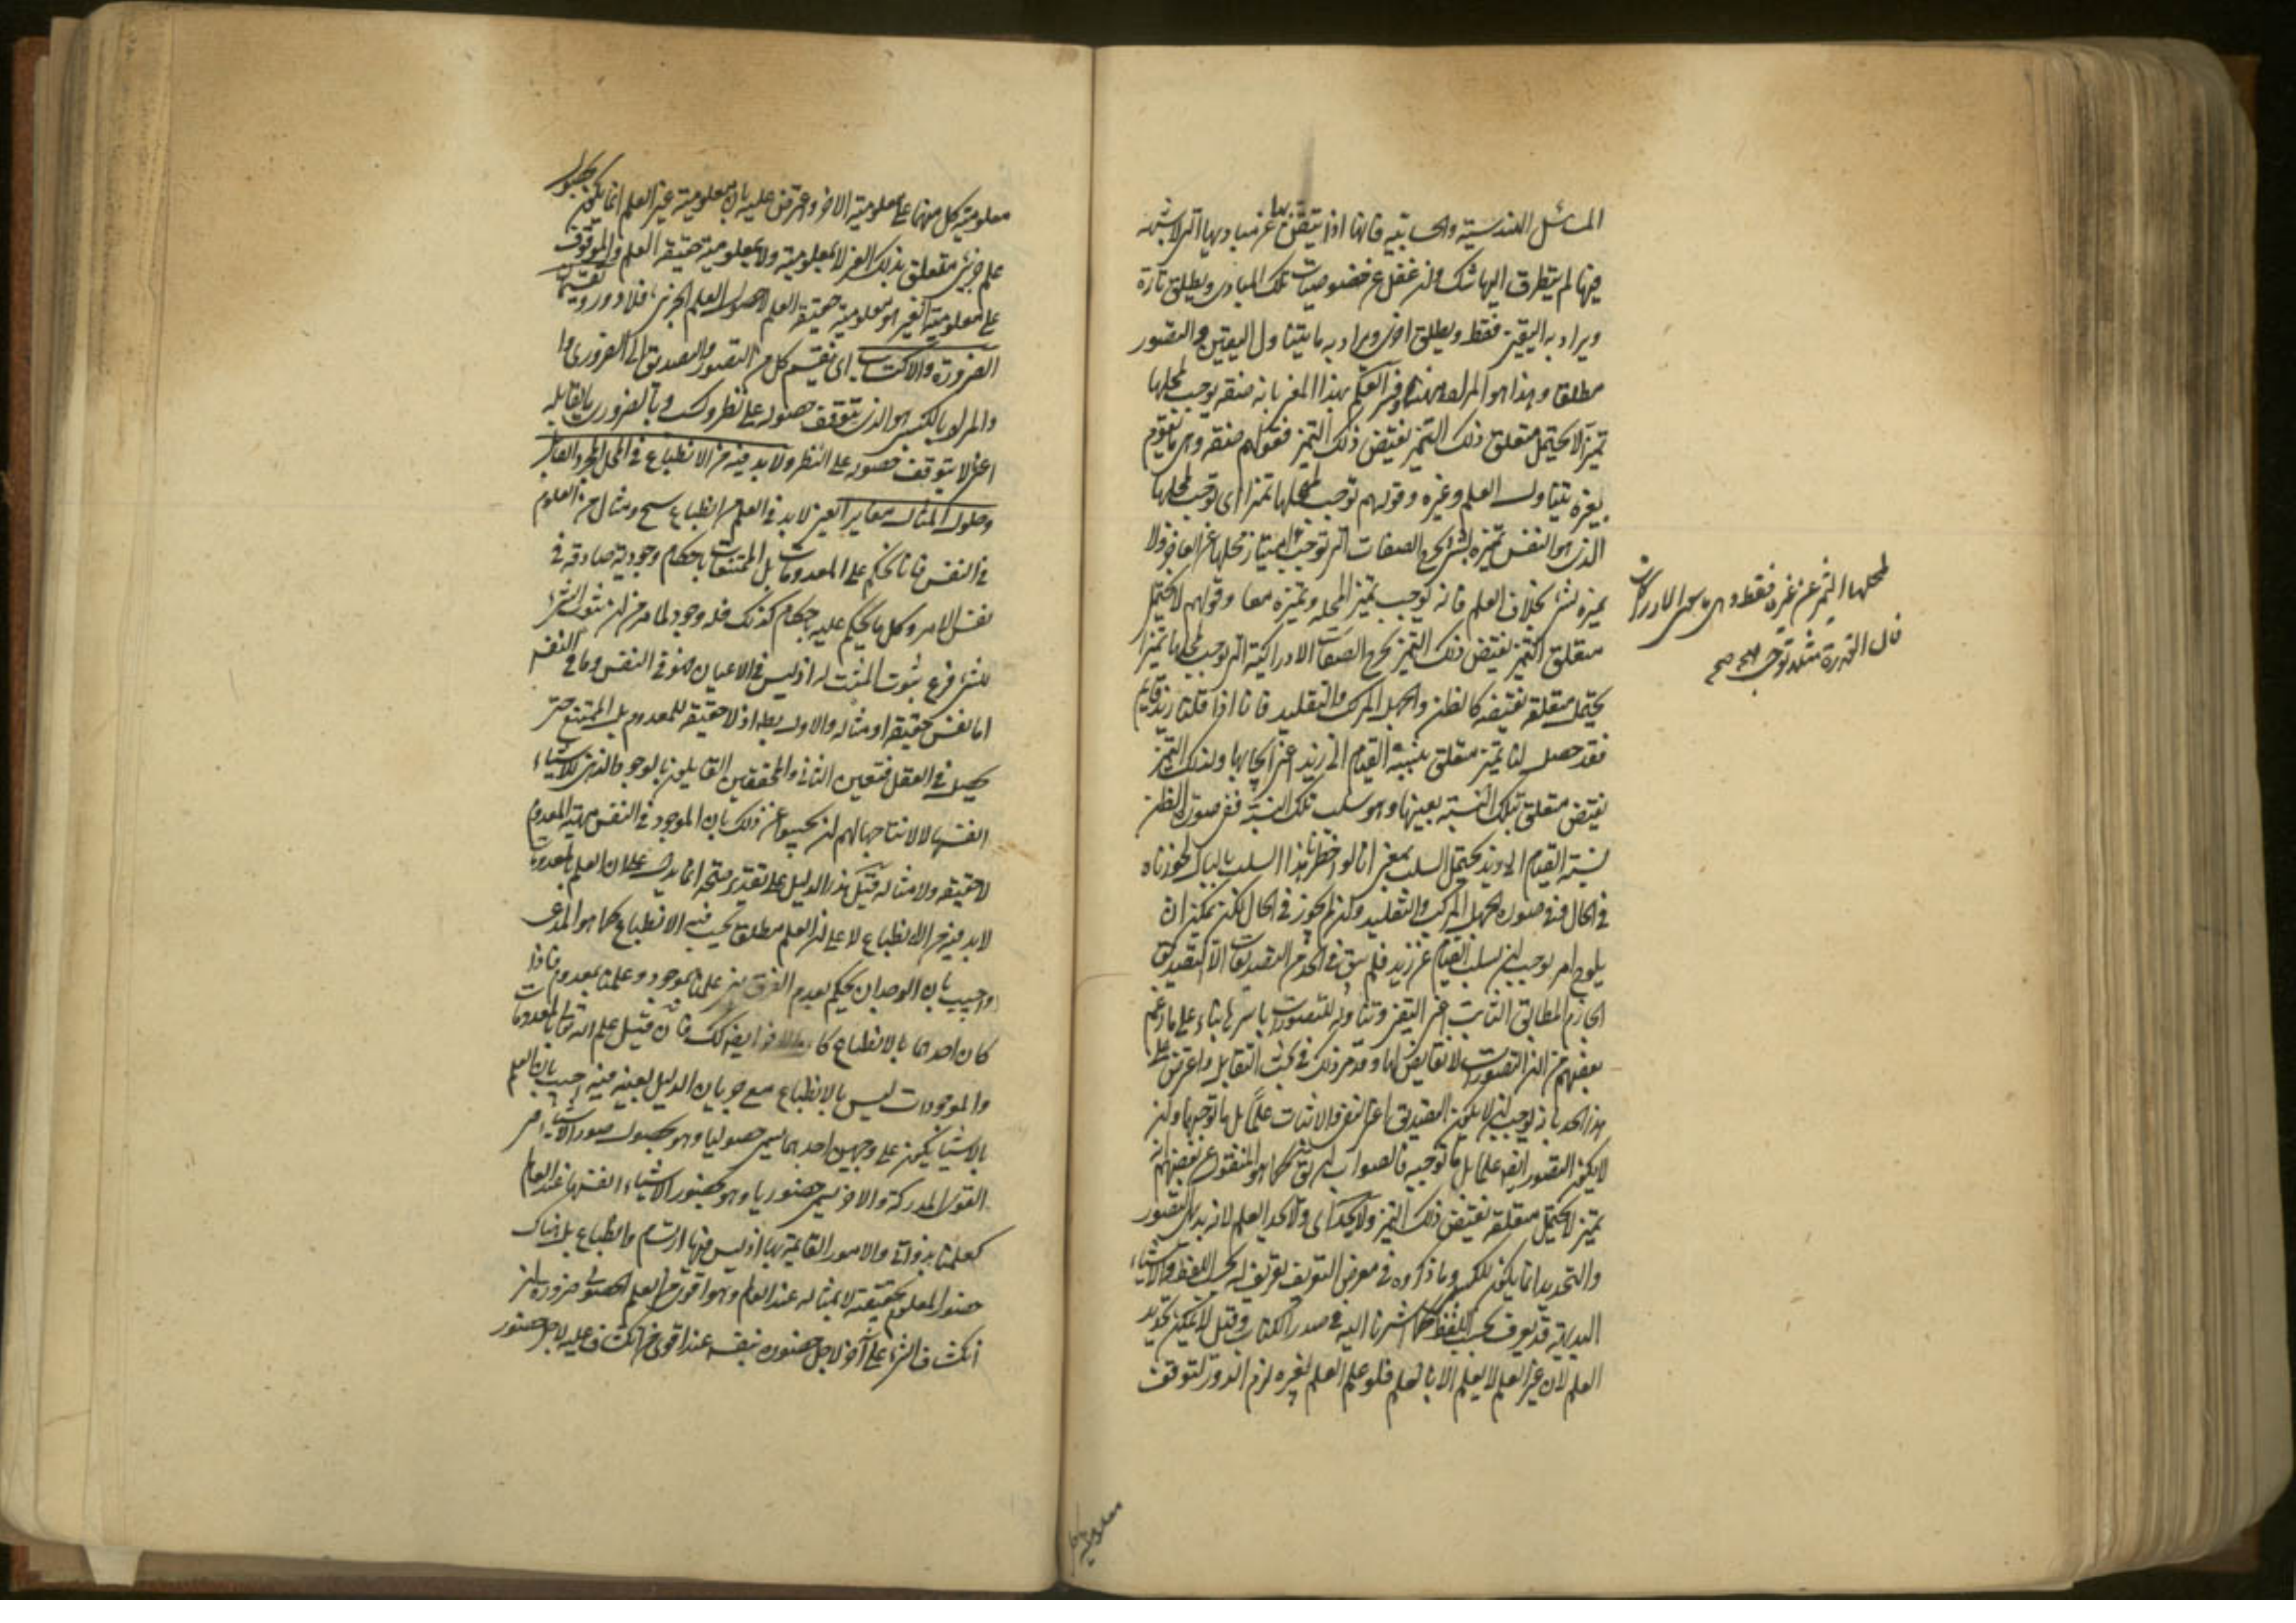 المسائل الهندسية والحسابية فانها اذا تيقن بها عن مباديها التي لا شبهة
فيها لم يتطرق اليها شك وان غفل عن خصوصيات تلك المبادى ويطلق تارة
ويراد به اليقين فقط ويطلق اخرى ويراد به ما يتناول اليقين والتصور
مطلقا وهذا هو المراد ههنا وفسر العلم بهذا المعنى بانه صفة توجب لمحلها
تميزا لا يحتمل متعلق ذلك التميز نقيض ذلك التميز فقولهم صفة وهى ما يقوم
بغيره يتناول العلم وغيره وقولهم توجب لمحلها تميزا اى توجب لمحلها
الذى هو النفس تميزه لشئ يخرج الصفات التى توجب امتياز محلها عن الغير ولا
تميزه لشئ بخلاف العلم فانه يوجب تميز المحل وتميزه معا وقولهم لا يحتمل
متعلق التميز نقيض ذلك التميز يخرج الصفات الادراكية التى توجب لمحلها تميزا
يحتمل متعلقه نقيضه كالظن والجهل المركب والتقليد فانا اذا قلنا زيد قايم
فقد حصل لنا تميز متعلق بنسبة القيام الى زيد اعنى ايجابها ولذلك التميز
نقيض متعلق بتلك النسبة بعينها وهو سلب تلك النسبة ففى صورة الظن
نسبة القيام الى زيد يحتمل السلب بمعنى انا لو اخطرنا هذا السلب بالبال لجوزناه
فى الحال وفى صورة الجهل المركب والتقليد وان لم يجوز فى الحال لكن يمكن ان
يلوح امر يوجب ان يسلب القيام عن زيد فلم يبق فى الحد من التصديقات الا التصديق
الجازم المطابق الثابت اعنى اليقين وتناوله للتصورات باسرها بناء على ما زعم
بعضهم من ان التصورات لا نقايض لها وقد مر ذلك فى بحث التقابل واعترض على
هذا الحد بانه يوجب ان لا يكون التصديق اعنى النفى والاثبات علما بل ما توجبهما وان
لا يكون التصور ايضا علما بل ما توجبه فالصواب ان يق كما هو المنقول عن بعضهم انه
تميز لا يحتمل متعلقه نقيض ذلك التميز ولا يحد اى ولا يحد العلم لانه بديهى التصور
والتحديد انما يكون للكسبى وما ذكروه فى معرض التعريف تعريف له بحسب اللفظ والاشياء
البديهية قد يعرف بحسب اللفظ كما اشرنا اليه فى صدر الكتاب وقيل لا يمكن تحديد
العلم لان غير العلم لا يعلم الا بالعلم فلو علم العلم بغيره لزم الدور لتوقف
لمحلها التميز عن غيره فقط وهى ما سوى الادراكات
فان القدرة مثلا توجب صح صح
معلومية
معلومية كل منهما على معلومية الاخر واعترض عليه بان معلومية غير العلم انما يكون بحصول
علم جزئى متعلق بذلك الغير لا بمعلوميته ولا بمعلومية حقيقة العلم والموقوف
على معلومية الغير هو معلومية حقيقة العلم لا حصول العلم الجزئى فلا دور وينقسمان
الضرورة والاكتساب اى ينقسم كل من التصور والتصديق الى الضرورى وا
والمراد بالكسبى هو الذى يتوقف حصوله على نظر وكسب وبالضرورى ما يقابله
اعنى لا يتوقف حصوله على النظر ولا بد فيه من الانطباع فى المحل المجرد القابل
وحلول المثال مغاير العين لا بد فى العلم من انطباع شبح ومثال من المعلوم
فى النفس فانا نحكم على المعدومات بل الممتنعات باحكام وجودية صادقة فى
نفس الامر وكل ما يحكم عليه باحكام كذلك فله وجود لما مر من ان ثبوت الشئ
للشئ فرع ثبوت المثبت له اذ ليس فى الاعيان فهو فى النفس وما فى النفس
اما نفس حقيقة او مثاله والاول بط اذ لا حقيقة للمعدوم بل الممتنع حتى
يحصل فى العقل فتعين الثانى والمحققين القايلين بالوجود الذهنى للاشياء
انفسها لا لامثالها لهم ان يجيبوا عن ذلك بان الموجود فى النفس مهية المعدوم
لا حقيقة ولا مثاله قيل هذا الدليل على تقدير صحته انما يدل على ان العلم بالمعدومات
لا بد فيه من الانطباع لا على ان العلم مطلقا يجب فيه الانطباع كما هو المدعى
واجيب بان الوجدان يحكم بعدم الفرق بين علمنا بموجود وعلمنا بمعدوم فاذا
كان احدهما بالانطباع كان الاخر ايضا كك فان قيل علم الله تعالى بالمعدومات
والموجودات ليس بالانطباع مع جريان الدليل بعينه فيه اجيب بان العلم
بالاشياء يكون على وجهين احدهما يسمى حصوليا وهو بحصول صور الاشياء فى
القوى المدركة والاخر يسمى حضوريا وهو بحضور الاشياء انفسها عند العالم
كعلمنا بذواتنا والامور القائمة بها اذ ليس فيها ارتسام وانطباع بل هناك
حضور المعلوم بحقيقته لا بمثاله عند العالم وهو اقوى من العلم الحصولى ضرورة ان
انكشاف الشئ على آخر لاجل حضوره بنفسه عنده اقوى من انكشافه عليه لاجل حضور